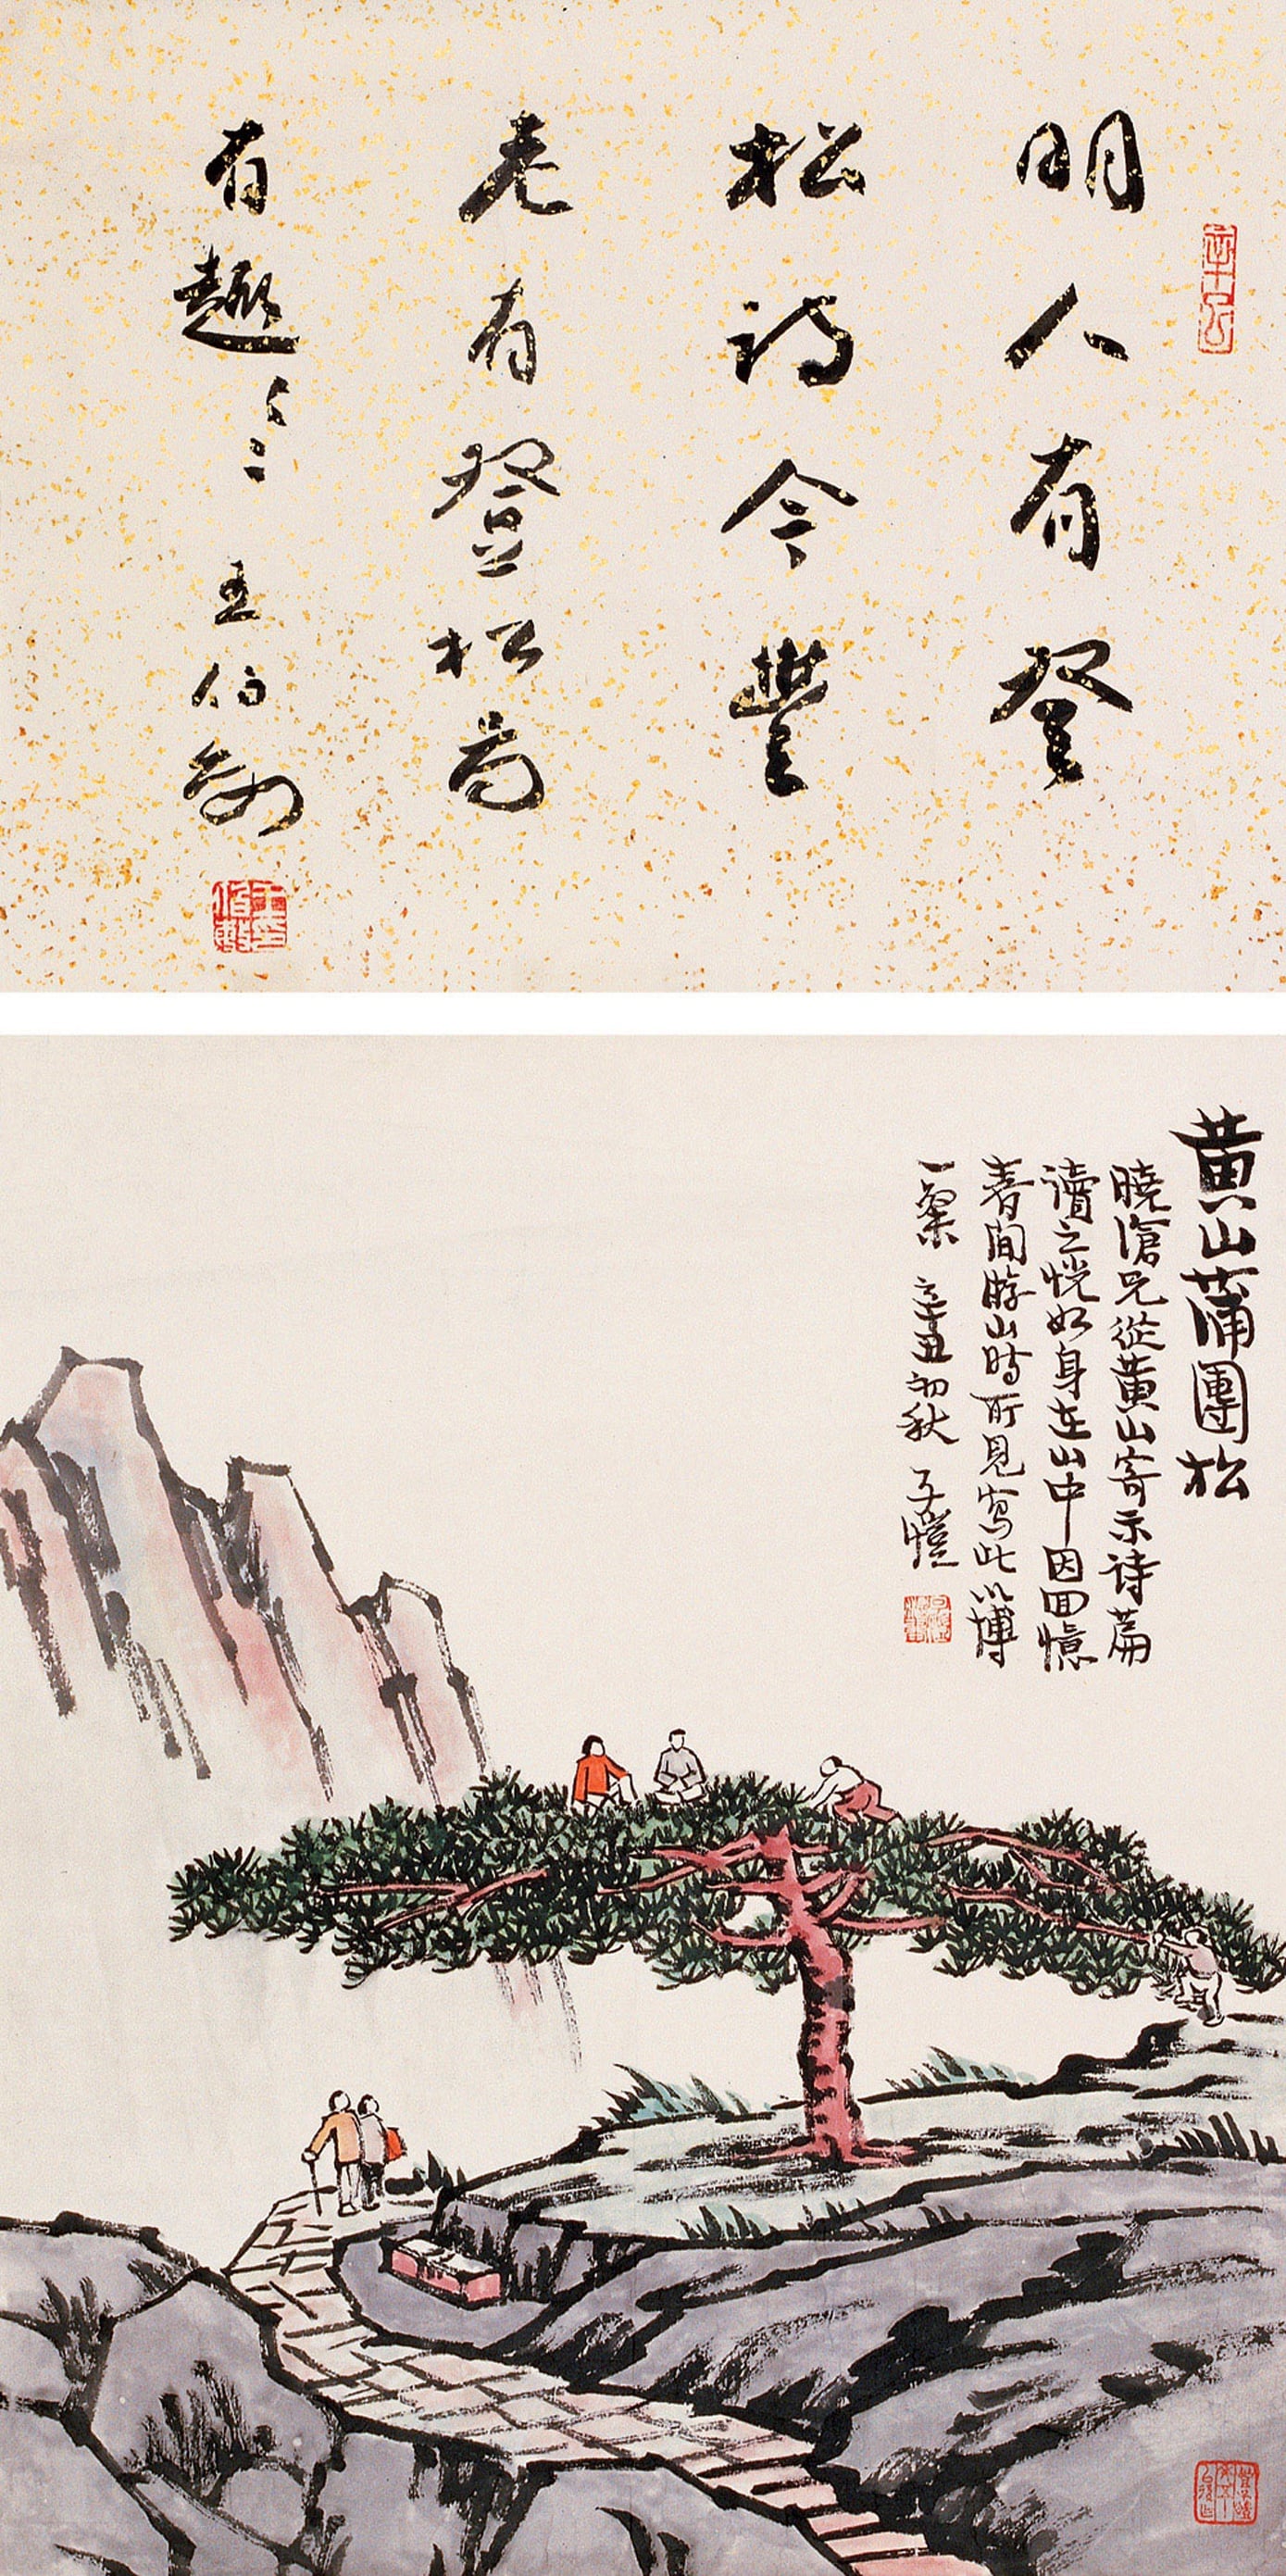 明人有登
松詩今豐
老有登松圖
有趣々々 王伯敏
王伯敏印
黄山蒲團松
曉滄兄從黄山寄示詩篇
讀之恍如身在山中因回憶
春間游山時所見寫此以博
一粲 辛丑初秋 子愷